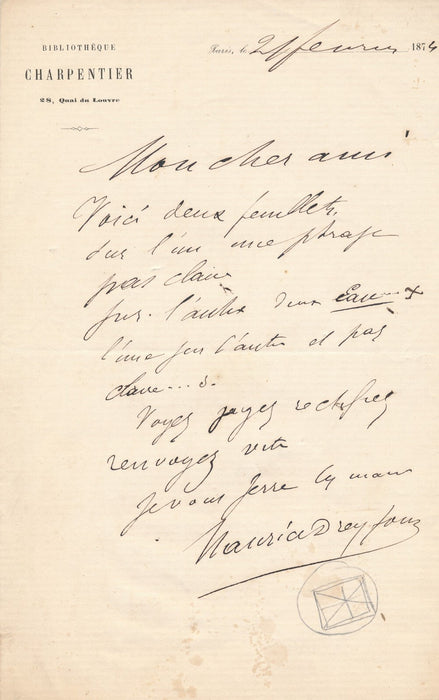 BIBLIOTHÈQUE
CHARPENTIER
28, Quai du Louvre
Paris, le 21 février 1874
Mon cher ami
Voici deux feuillets,
sur l'un une phrase
pas claire
sur l'autre deux Eau x
l'une sur l'autre et pas
claire... s.
Voyez jugez rectifiez
renvoyez vite
Je vous serre les mains
Maurice Dreyfous